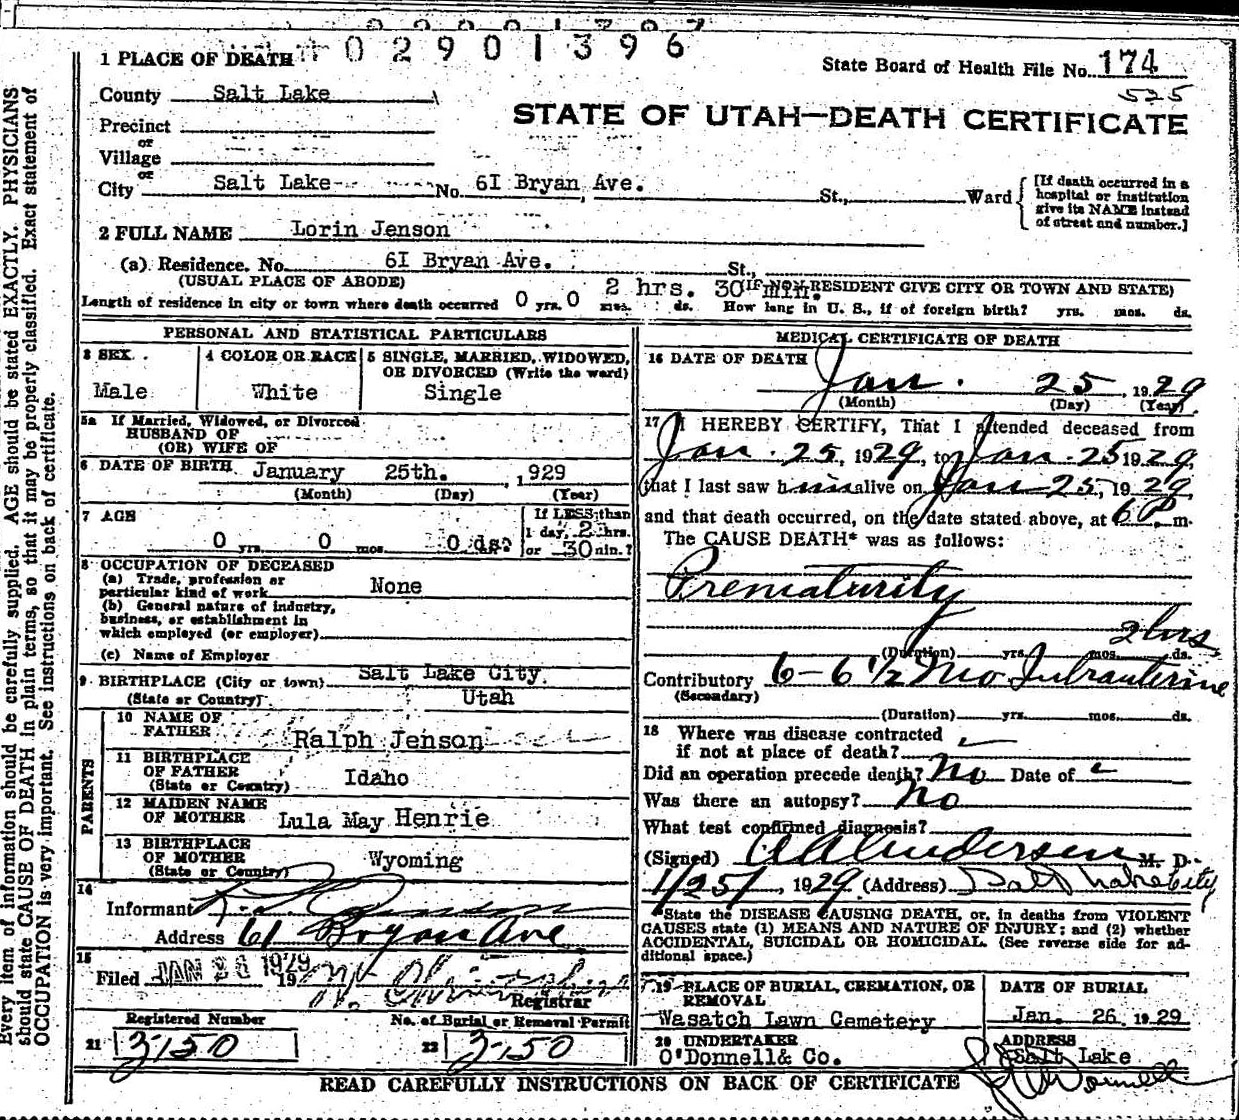 02901396
1 PLACE OF DEATH
State Board of Health File No. 174
525
County Salt Lake
STATE OF UTAH—DEATH CERTIFICATE
Precinct
or
Village
or
City Salt Lake No. 6I Bryan Ave. St., Ward
[If death occurred in a hospital or institution give its NAME instead of street and number.]
2 FULL NAME Lorin Jenson
(a) Residence. No. 6I Bryan Ave. St.,
(USUAL PLACE OF ABODE) (IF NON-RESIDENT GIVE CITY OR TOWN AND STATE)
2 hrs. 30 min.
Length of residence in city or town where death occurred 0 yrs. 0 mos. ds. How long in U. S., if of foreign birth? yrs. mos. ds.
PERSONAL AND STATISTICAL PARTICULARS
3 SEX
Male
4 COLOR OR RACE
White
5 SINGLE, MARRIED, WIDOWED,
OR DIVORCED (Write the word)
Single
5a If Married, Widowed, or Divorced
HUSBAND OF
(OR) WIFE OF
6 DATE OF BIRTH January 25th. , 1929
(Month) (Day) (Year)
7 AGE
0 yrs. 0 mos. 0 ds.
If LESS than
1 day, 2 hrs.
or 30 min.?
8 OCCUPATION OF DECEASED
(a) Trade, profession or
particular kind of work None
(b) General nature of industry,
business, or establishment in
which employed (or employer)
(c) Name of Employer
9 BIRTHPLACE (City or town) Salt Lake City.
(State or Country) Utah
PARENTS
10 NAME OF
FATHER Ralph Jenson
11 BIRTHPLACE
OF FATHER
(State or Country) Idaho
12 MAIDEN NAME
OF MOTHER Lula May Henrie
13 BIRTHPLACE
OF MOTHER
(State or Country) Wyoming
14
Informant
Address 61 Bryan Ave
15
Filed JAN 26 1929 19
Registrar
Registered Number
21 3150
No. of Burial or Removal Permit
22 3150
MEDICAL CERTIFICATE OF DEATH
16 DATE OF DEATH
Jan. 25, 1929
(Month) (Day) (Year)
17 I HEREBY CERTIFY, That I attended deceased from
Jan. 25, 1929, to Jan. 25 1929,
that I last saw him alive on Jan 25, 1929,
and that death occurred, on the date stated above, at 6 P. m.
The CAUSE DEATH* was as follows:
Prematurity
2 hrs
(Duration) yrs. mos. ds.
Contributory 6–6 1/2 Mo Intrauterine
(Secondary)
(Duration) yrs. mos. ds.
18 Where was disease contracted
if not at place of death?
Did an operation precede death? No Date of
Was there an autopsy? No
What test confirmed diagnosis?
(Signed) Andersen M. D.
1/25/, 1929. (Address) Salt Lake City
*State the DISEASE CAUSING DEATH, or, in deaths from VIOLENT
CAUSES state (1) MEANS AND NATURE OF INJURY; and (2) whether
ACCIDENTAL, SUICIDAL OR HOMICIDAL. (See reverse side for additional space.)
19 PLACE OF BURIAL, CREMATION, OR
REMOVAL
Wasatch Lawn Cemetery
DATE OF BURIAL
Jan. 26, 1929
20 UNDERTAKER
O'Donnell & Co.
ADDRESS
Salt Lake
READ CAREFULLY INSTRUCTIONS ON BACK OF CERTIFICATE
Every item of information should be carefully supplied. AGE should be stated EXACTLY. PHYSICIANS
should state CAUSE OF DEATH in plain terms, so that it may be properly classified. Exact statement of
OCCUPATION is very important. See instructions on back of certificate.